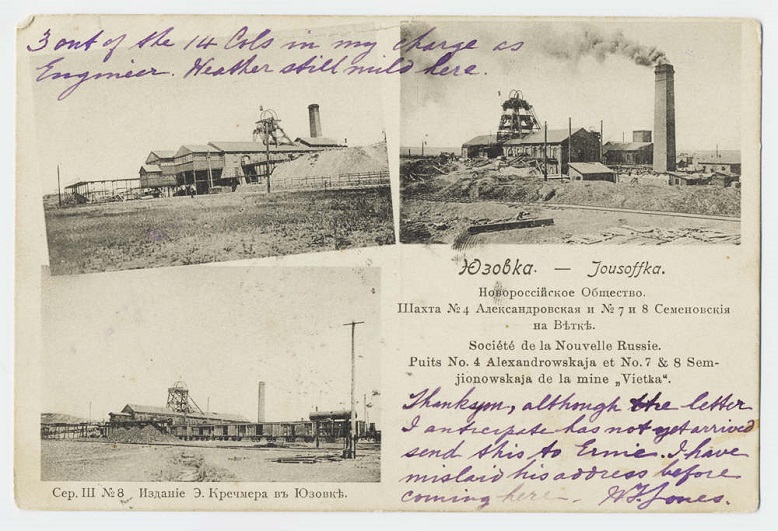 3 out of the 14 Cols in my charge as
Engineer. Weather still mild here.
Юзовка. — Jousoffka.
Новороссійское Общество.
Шахта №4 Александровская и №7 и 8 Семеновскія
на Вѣткѣ.
Société de la Nouvelle Russie.
Puits No. 4 Alexandrowskaja et No. 7 & 8 Sem-
jionowskaja de la mine „Vietka“.
although the letter
I anticipate has not yet arrived
send this to Ernie. I have
mislaid his address before
coming here. Jones.
Сер. III №8 Изданіе Э. Кречмера въ Юзовкѣ.